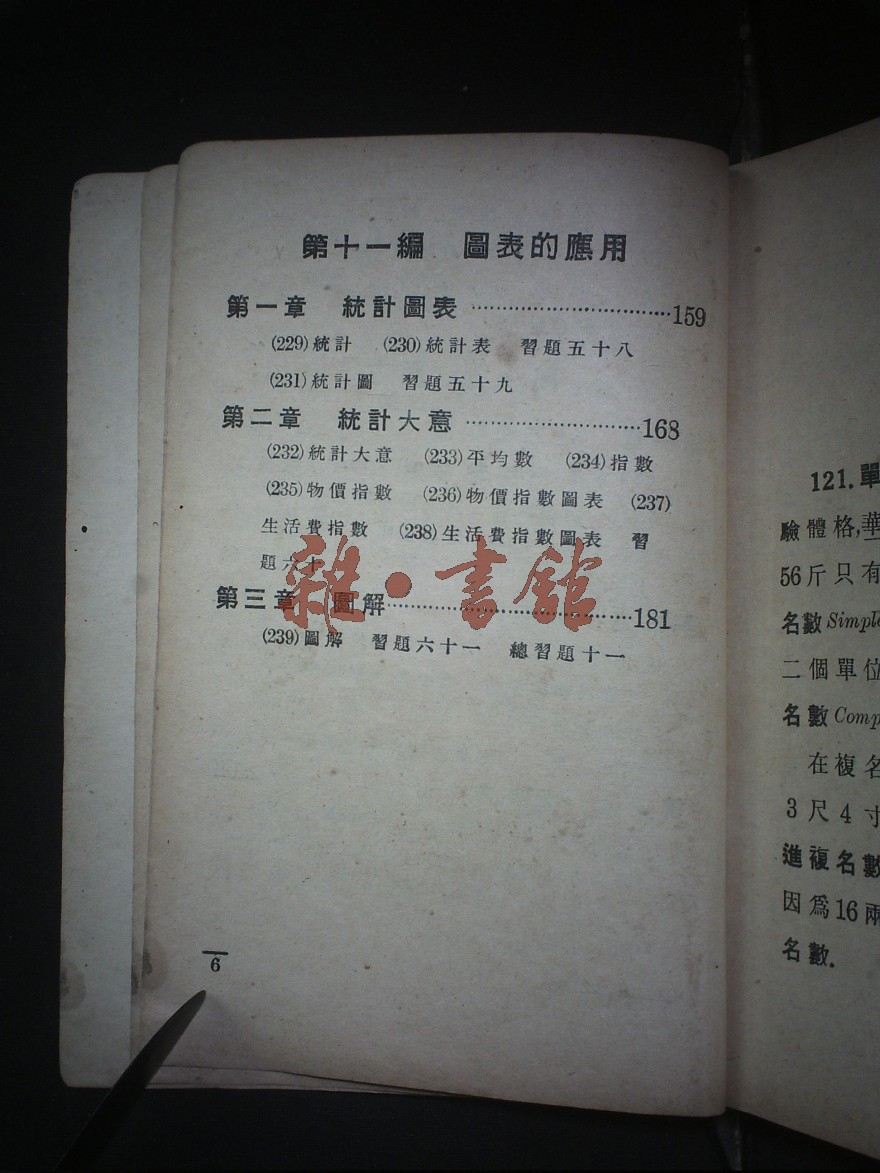 第十一編 圖表的應用
第一章 統計圖表 ································159
(229)統計 (230)統計表 習題五十八
(231)統計圖 習題五十九
第二章 統計大意 ····························168
(232)統計大意 (233)平均數 (234)指數
(235)物價指數 (236)物價指數圖表 (237)
生活費指數 (238)生活費指數圖表 習
題六十
第三章 圖解·······································181
(239)圖解 習題六十一 總習題十一
6
雜·書館
121.單
驗體格,華
56斤只有
名數Simple
二個單位
名數Comp
在複名
3尺4寸
進複名數
因爲16兩
名數.